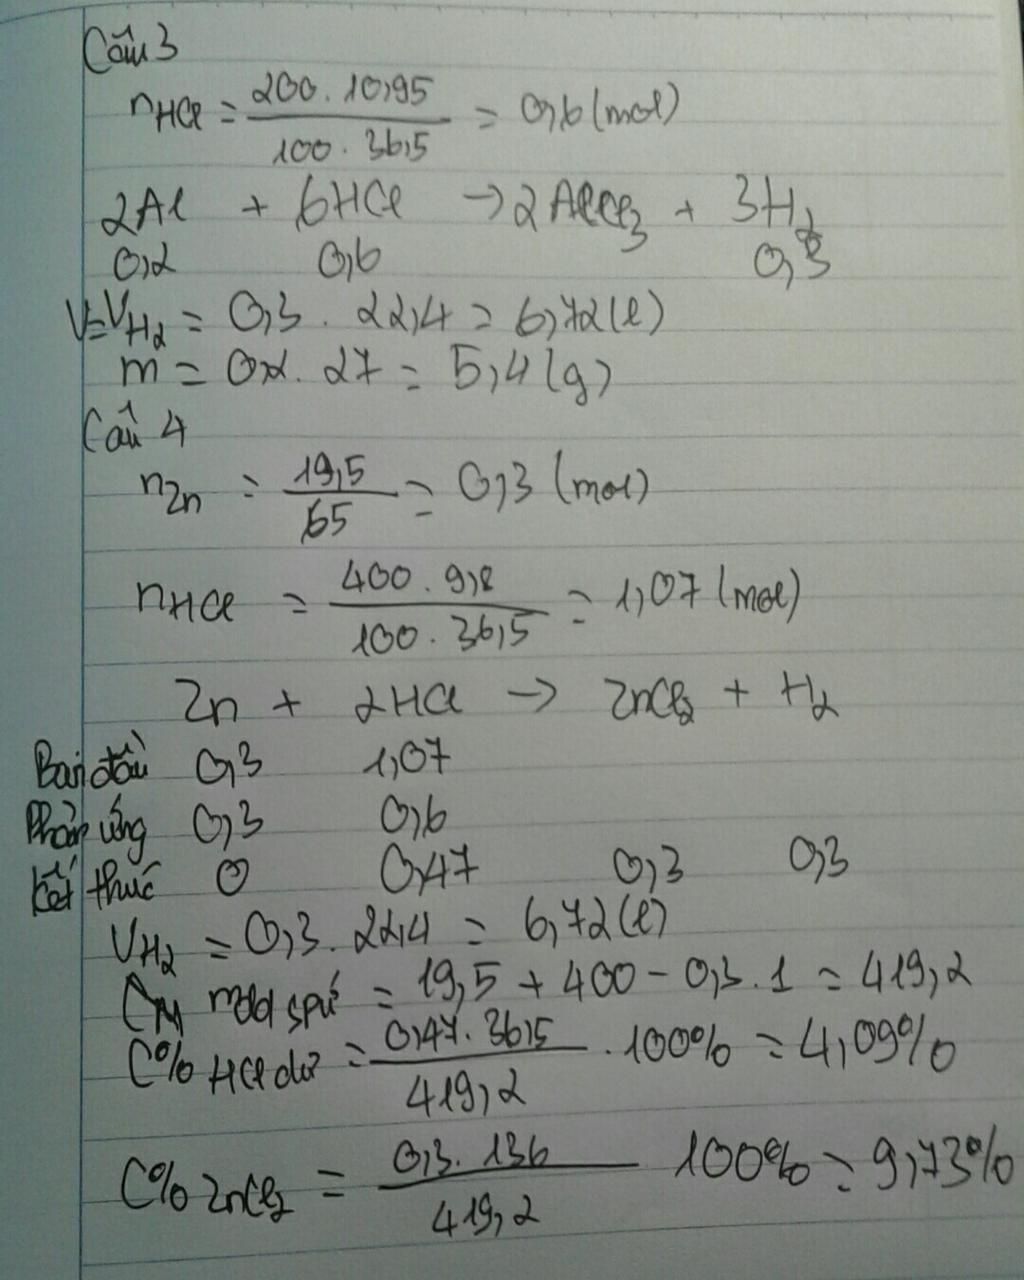 Câu 3
nHCl = 200.10,95 / 100.36,5 = 0,6 (mol)
2Al + 6HCl → 2AlCl3 + 3H2
0,2 0,6 0,3
V=VH2 = 0,3. 22,4 = 6,72(l)
m = 0,2. 27 = 5,4 (g)
Câu 4
nZn = 19,5 / 65 = 0,3 (mol)
nHCl = 400.9,8 / 100.36,5 = 1,07 (mol)
Zn + 2HCl → ZnCl2 + H2
Ban đầu 0,3 1,07
Phản ứng 0,3 0,6
Kết thúc 0 0,47 0,3 0,3
VH2 = 0,3. 22,4 = 6,72(l)
CM mdd spứ = 19,5 + 400 - 0,3.1 = 419,2
C% HCl dư = 0,47. 36,5 / 419,2 . 100% = 4,09%
C% ZnCl2 = 0,3. 136 / 419,2 100% = 9,73%